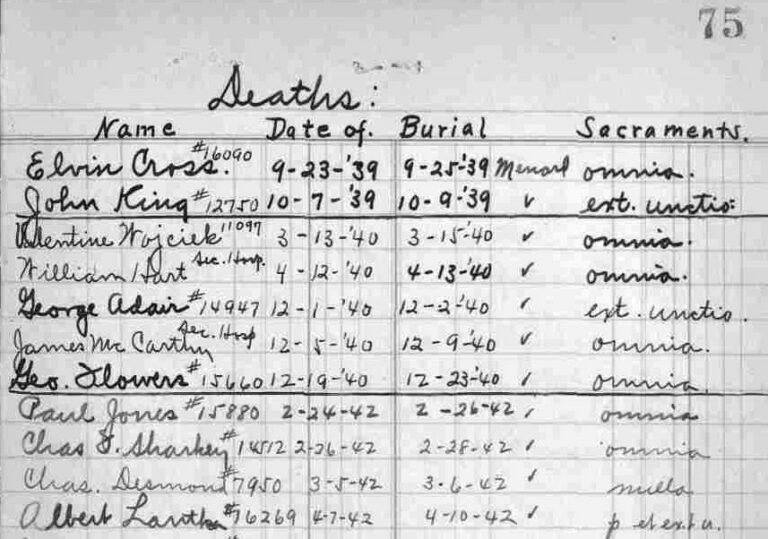 75
Deaths:
Name Date of. Burial Sacraments.
Elvin Cross. #16090 9-23-'39 9-25-'39 Menard omnia.
John King #12750 10-7-'39 10-9-'39 ✓ ext. unctio.
Valentine Wojciek 11097 3-13-'40 3-15-'40 ✓ omnia.
William Hart Sec. Hosp. 4-12-'40 4-13-'40 ✓ omnia.
George Adair #14947 12-1-'40 12-2-'40 ✓ ext. unctio.
James Mc Carthy Sec. Hosp 12-5-'40 12-9-'40 ✓ omnia.
Geo. Flowers #15660 12-19-'40 12-23-'40 ✓ omnia.
Paul Jones #15880 2-24-42 2-26-42 ✓ omnia
Chas F. Sharkey # 2-26-42 2-28-42 ✓ omnia
Chas. Desmond #7950 3-5-42 3-6-42 ✓ nulla
Albert #16269 4-7-42 4-10-42 ✓ p et ext u.